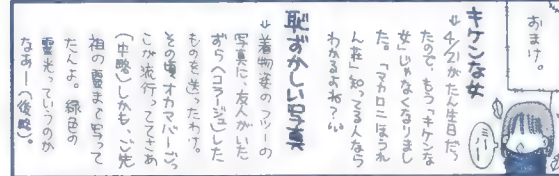 おまけ。
キケンな女
⇩4/21がたん生日だっ
たので、もうキケンな
女じゃなくなりまし
た。「マカロニほうれ
ん荘」知ってる人なら
わかるよね？
恥ずかしい写真
⇩着物姿のフツーの
写真に、友人がいた
ずら(コラージュ)した
ものを送ったわけ。
その頃オカマバーごっ
こが流行っててさぁ
(中略)しかも、ご先
祖の霊まで写って
たんよ。緑色の
霊光っていうのか
なあー(後略)。
ミー
ハー